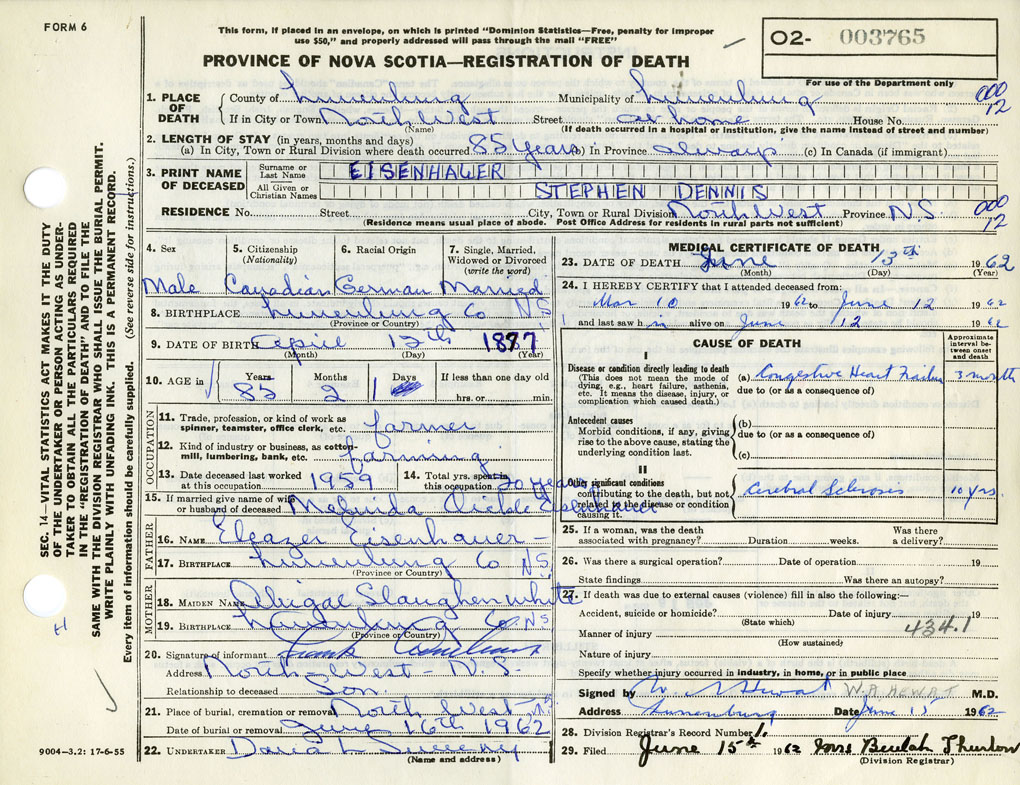 FORM 6
This form, if placed in an envelope, on which is printed "Dominion Statistics—Free, penalty for improper
use $50," and properly addressed will pass through the mail "FREE"
02- 003765
PROVINCE OF NOVA SCOTIA—REGISTRATION OF DEATH
For use of the Department only
1. PLACE OF DEATH County of Lunenburg Municipality of Lunenburg 000
If in City or Town North West Street at home House No. 12
(Name) (If death occurred in a hospital or institution, give the name instead of street and number)
2. LENGTH OF STAY (in years, months and days)
(a) In City, Town or Rural Division where death occurred 85 Years (b) In Province always (c) In Canada (if immigrant)
3. PRINT NAME OF DECEASED Surname or Last Name EISENHAUER
All Given or Christian Names STEPHEN DENNIS
RESIDENCE No. Street City, Town or Rural Division North West Province N.S 000 12
(Residence means usual place of abode. Post Office Address for residents in rural parts not sufficient)
4. Sex 5. Citizenship (Nationality) 6. Racial Origin 7. Single, Married, Widowed or Divorced (write the word)
Male Canadian German Married
8. BIRTHPLACE Lunenburg Co N.S
(Province or Country)
9. DATE OF BIRTH April 12th 1877
(Month) (Day) (Year)
10. AGE in Years Months Days If less than one day old
85 2 1 hrs. or min.
OCCUPATION
11. Trade, profession, or kind of work as spinner, teamster, office clerk, etc. farmer
12. Kind of industry or business, as cotton-mill, lumbering, bank, etc. farming
13. Date deceased last worked at this occupation 1959 14. Total yrs. spent in this occupation 50 years
15. If married give name of wife or husband of deceased Eisenhauer
FATHER
16. NAME Eleazer Eisenhauer
17. BIRTHPLACE Lunenburg Co N.S.
(Province or Country)
MOTHER
18. MAIDEN NAME Abigal Slaughenwhite
19. BIRTHPLACE Lunenburg Co N.S
(Province or Country)
20. Signature of informant Frank
Address North West - N.S.
Relationship to deceased Son
21. Place of burial, cremation or removal North West N.S
Date of burial or removal June 16th 1962
22. UNDERTAKER
(Name and address)
MEDICAL CERTIFICATE OF DEATH
23. DATE OF DEATH June 13th 1962
(Month) (Day) (Year)
24. I HEREBY CERTIFY that I attended deceased from:
Mar 10 1962 to June 12 1962
and last saw him alive on June 12 1962
CAUSE OF DEATH
Approximate interval between onset and death
I
Disease or condition directly leading to death
(This does not mean the mode of dying, e.g., heart failure, asthenia, etc. It means the disease, injury, or complication which caused death.)
(a) Congestive Heart Failure 3 month
due to (or as a consequence of)
Antecedent causes
Morbid conditions, if any, giving rise to the above cause, stating the underlying condition last.
(b)
due to (or as a consequence of)
(c)
II
Other significant conditions
contributing to the death, but not related to the disease or condition causing it.
Cerebral Scleroses 10 yrs.
25. If a woman, was the death associated with pregnancy? Duration weeks. Was there a delivery?
26. Was there a surgical operation? Date of operation 19
State findings Was there an autopsy?
27. If death was due to external causes (violence) fill in also the following:—
Accident, suicide or homicide? Date of injury 19
(State which) 434.1
Manner of injury
(How sustained)
Nature of injury
Specify whether injury occurred in industry, in home, or in public place
Signed by W A Hewat W.A.HEWAT M.D.
Address Lunenburg Date June 15 1962
28. Division Registrar's Record Number 1.
29. Filed June 15th 1962 Mrs Beulah Thurlow
(Division Registrar)
SEC. 14—VITAL STATISTICS ACT MAKES IT THE DUTY
OF THE UNDERTAKER OR PERSON ACTING AS UNDER-
TAKER TO OBTAIN ALL THE PARTICULARS REQUIRED
IN THE "REGISTRATION OF DEATH" AND TO FILE THE
SAME WITH THE DIVISION REGISTRAR WHO SHALL ISSUE THE BURIAL PERMIT.
WRITE PLAINLY WITH UNFADING INK. THIS IS A PERMANENT RECORD.
Every item of information should be carefully supplied. (See reverse side for instructions.)
9004-3.2: 17-6-55